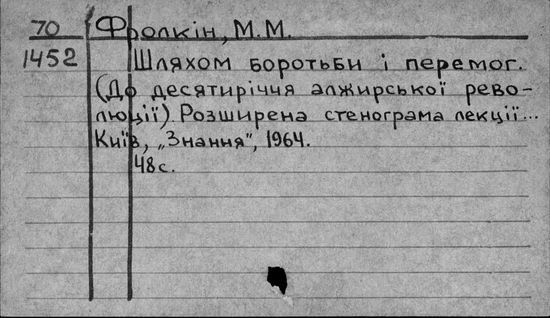 70 Фролкін, М.М.
1452 Шляхом боротьби і перемог.
(До десятиріччя алжирської рево-
люції). Розширена стенограма лекції...
Київ, „Знання", 1964.
48с.